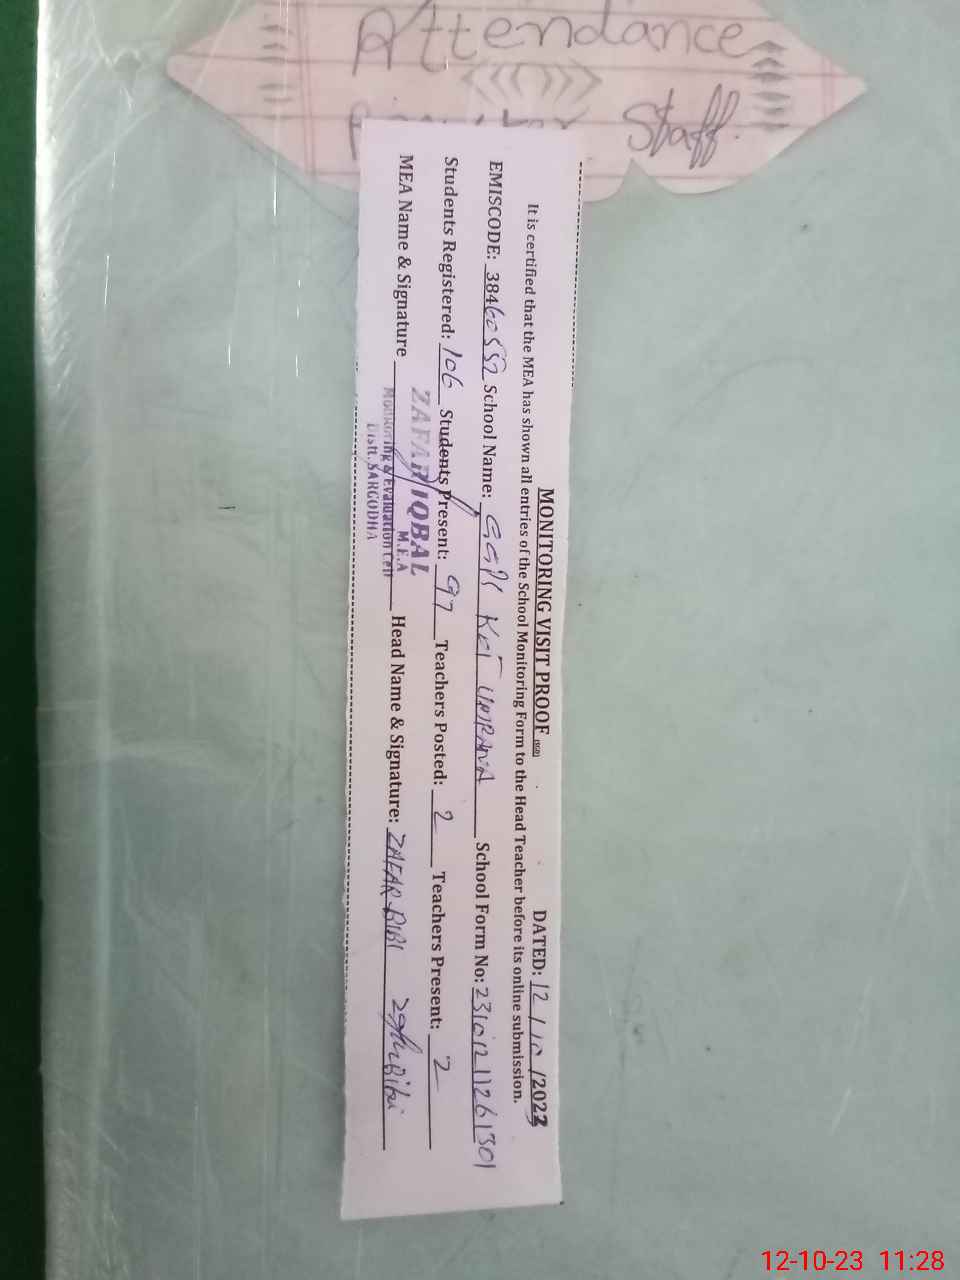 Attendance
Staff
MONITORING VISIT PROOF (SGD) DATED: 12/10/2023
It is certified that the MEA has shown all entries of the School Monitoring Form to the Head Teacher before its online submission.
EMISCODE: 38460552 School Name: GGPS KOT UMRANA School Form No: 23101211261301
Students Registered: 106 Students Present: 97 Teachers Posted: 2 Teachers Present: 2
MEA Name & Signature Head Name & Signature: ZAFAR BIBI
ZAFAR IQBAL
M.E.A
Monitoring & Evaluation Cell
Distt. SARGODHA
12-10-23 11:28